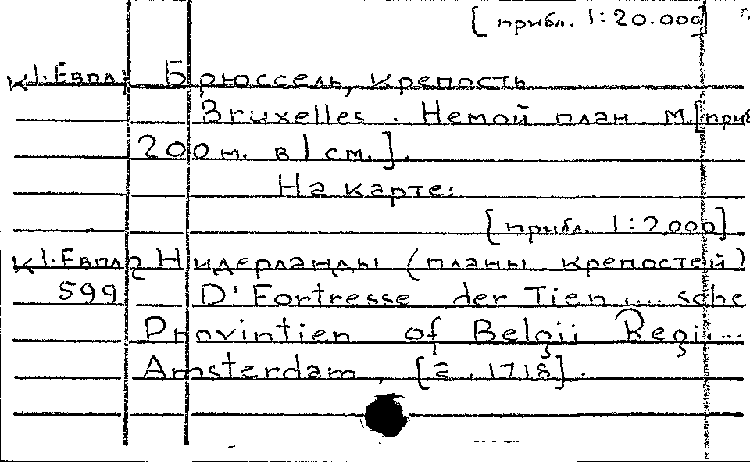 [прибл. 1:20.000]
К1.Евпл. Брюссель, крепость
Bruxelles. Немой план. М.[приб
200 м. в 1 см.].
На карте:
[прибл. 1:2,000]
К1.Евпл2 Нидерланды (планы крепостей)
599 D'Fortresse der Tien .... sche
Provintien of Belgii Regi...
Amsterdam, [г. 1718].